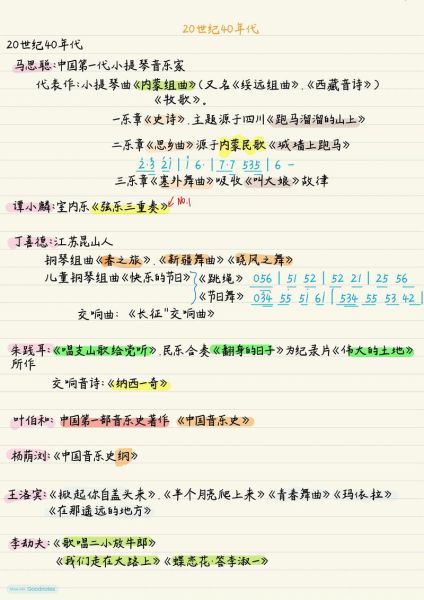 20世纪40年代
20世纪40年代
马思聪:中国第一代小提琴音乐家
代表作:小提琴曲《内蒙组曲》(又名《绥远组曲》、《西藏音诗》)
《牧歌》。
一乐章《史诗》,主题源于四川《跑马溜溜的山上》
二乐章《思乡曲》源于内蒙民歌《城墙上跑马》
三乐章《塞外舞曲》吸收《叫大娘》故律
谭小麟:室内乐《弦乐三重奏》 No.1
丁善德:江苏昆山人
钢琴组曲《春之旅》、《新疆舞曲》《晓风之舞》
儿童钢琴组曲《快乐的节日》
《跳绳》 056 | 51 52 | 52 21 | 25 56
《节日舞》 034 55 51 61 | 534 55 53 42 |
交响曲:《长征"交响曲》
朱践耳:《唱支山歌给党听》、民乐合奏《翻身的日子》为纪录片《伟大的土地》
所作
交响音诗:《纳西一奇》
叶伯和:中国第一部音乐史著作《中国音乐史》
杨荫浏:《中国音乐史纲》
王洛宾:《掀起你的盖头来》、《半个月亮爬上来》《青春舞曲》《玛依拉》
《在那遥远的地方》
李劫夫:《歌唱二小放牛郎》
《我们走在大路上》《蝶恋花·答李淑一》
Made with Goodnotes